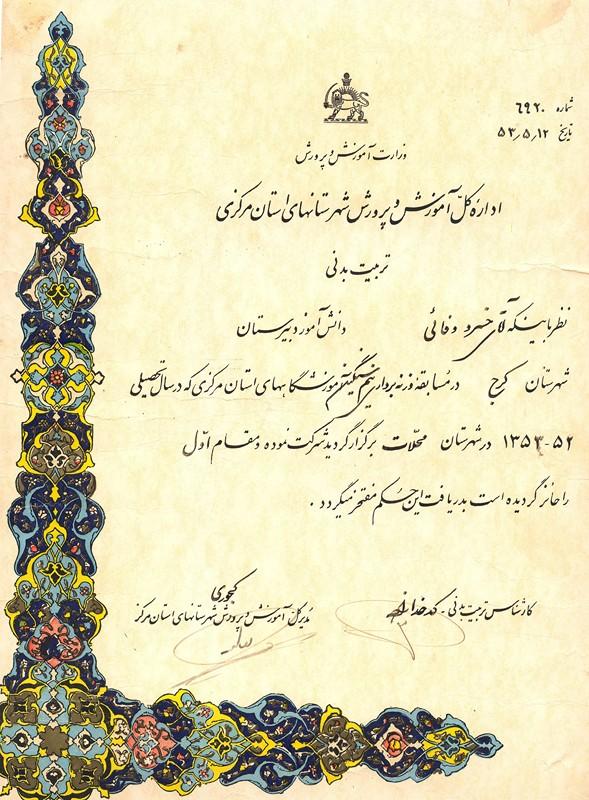 شماره ۶۹۲۰
تاریخ ۵۳٫۵٫۱۲
وزارت آموزش و پرورش
اداره کل آموزش و پرورش شهرستانهای استان مرکزی
تربیت بدنی
نظر باینکه آقای خسرو وفائی دانش آموز دبیرستان
شهرستان کرج در مسابقه وزنه برداری نیم سنگین آموزشگاههای استان مرکزی که در سال تحصیلی
۵۲-۱۳۵۳ در شهرستان محلات برگزار گردید شرکت نموده و مقام اول
را حائز گردیده است بدریافت این حکم مفتخر میگردد.
کارشناس تربیت بدنی - کدخدازاده
کجوری
مدیر کل آموزش و پرورش شهرستانهای استان مرکز